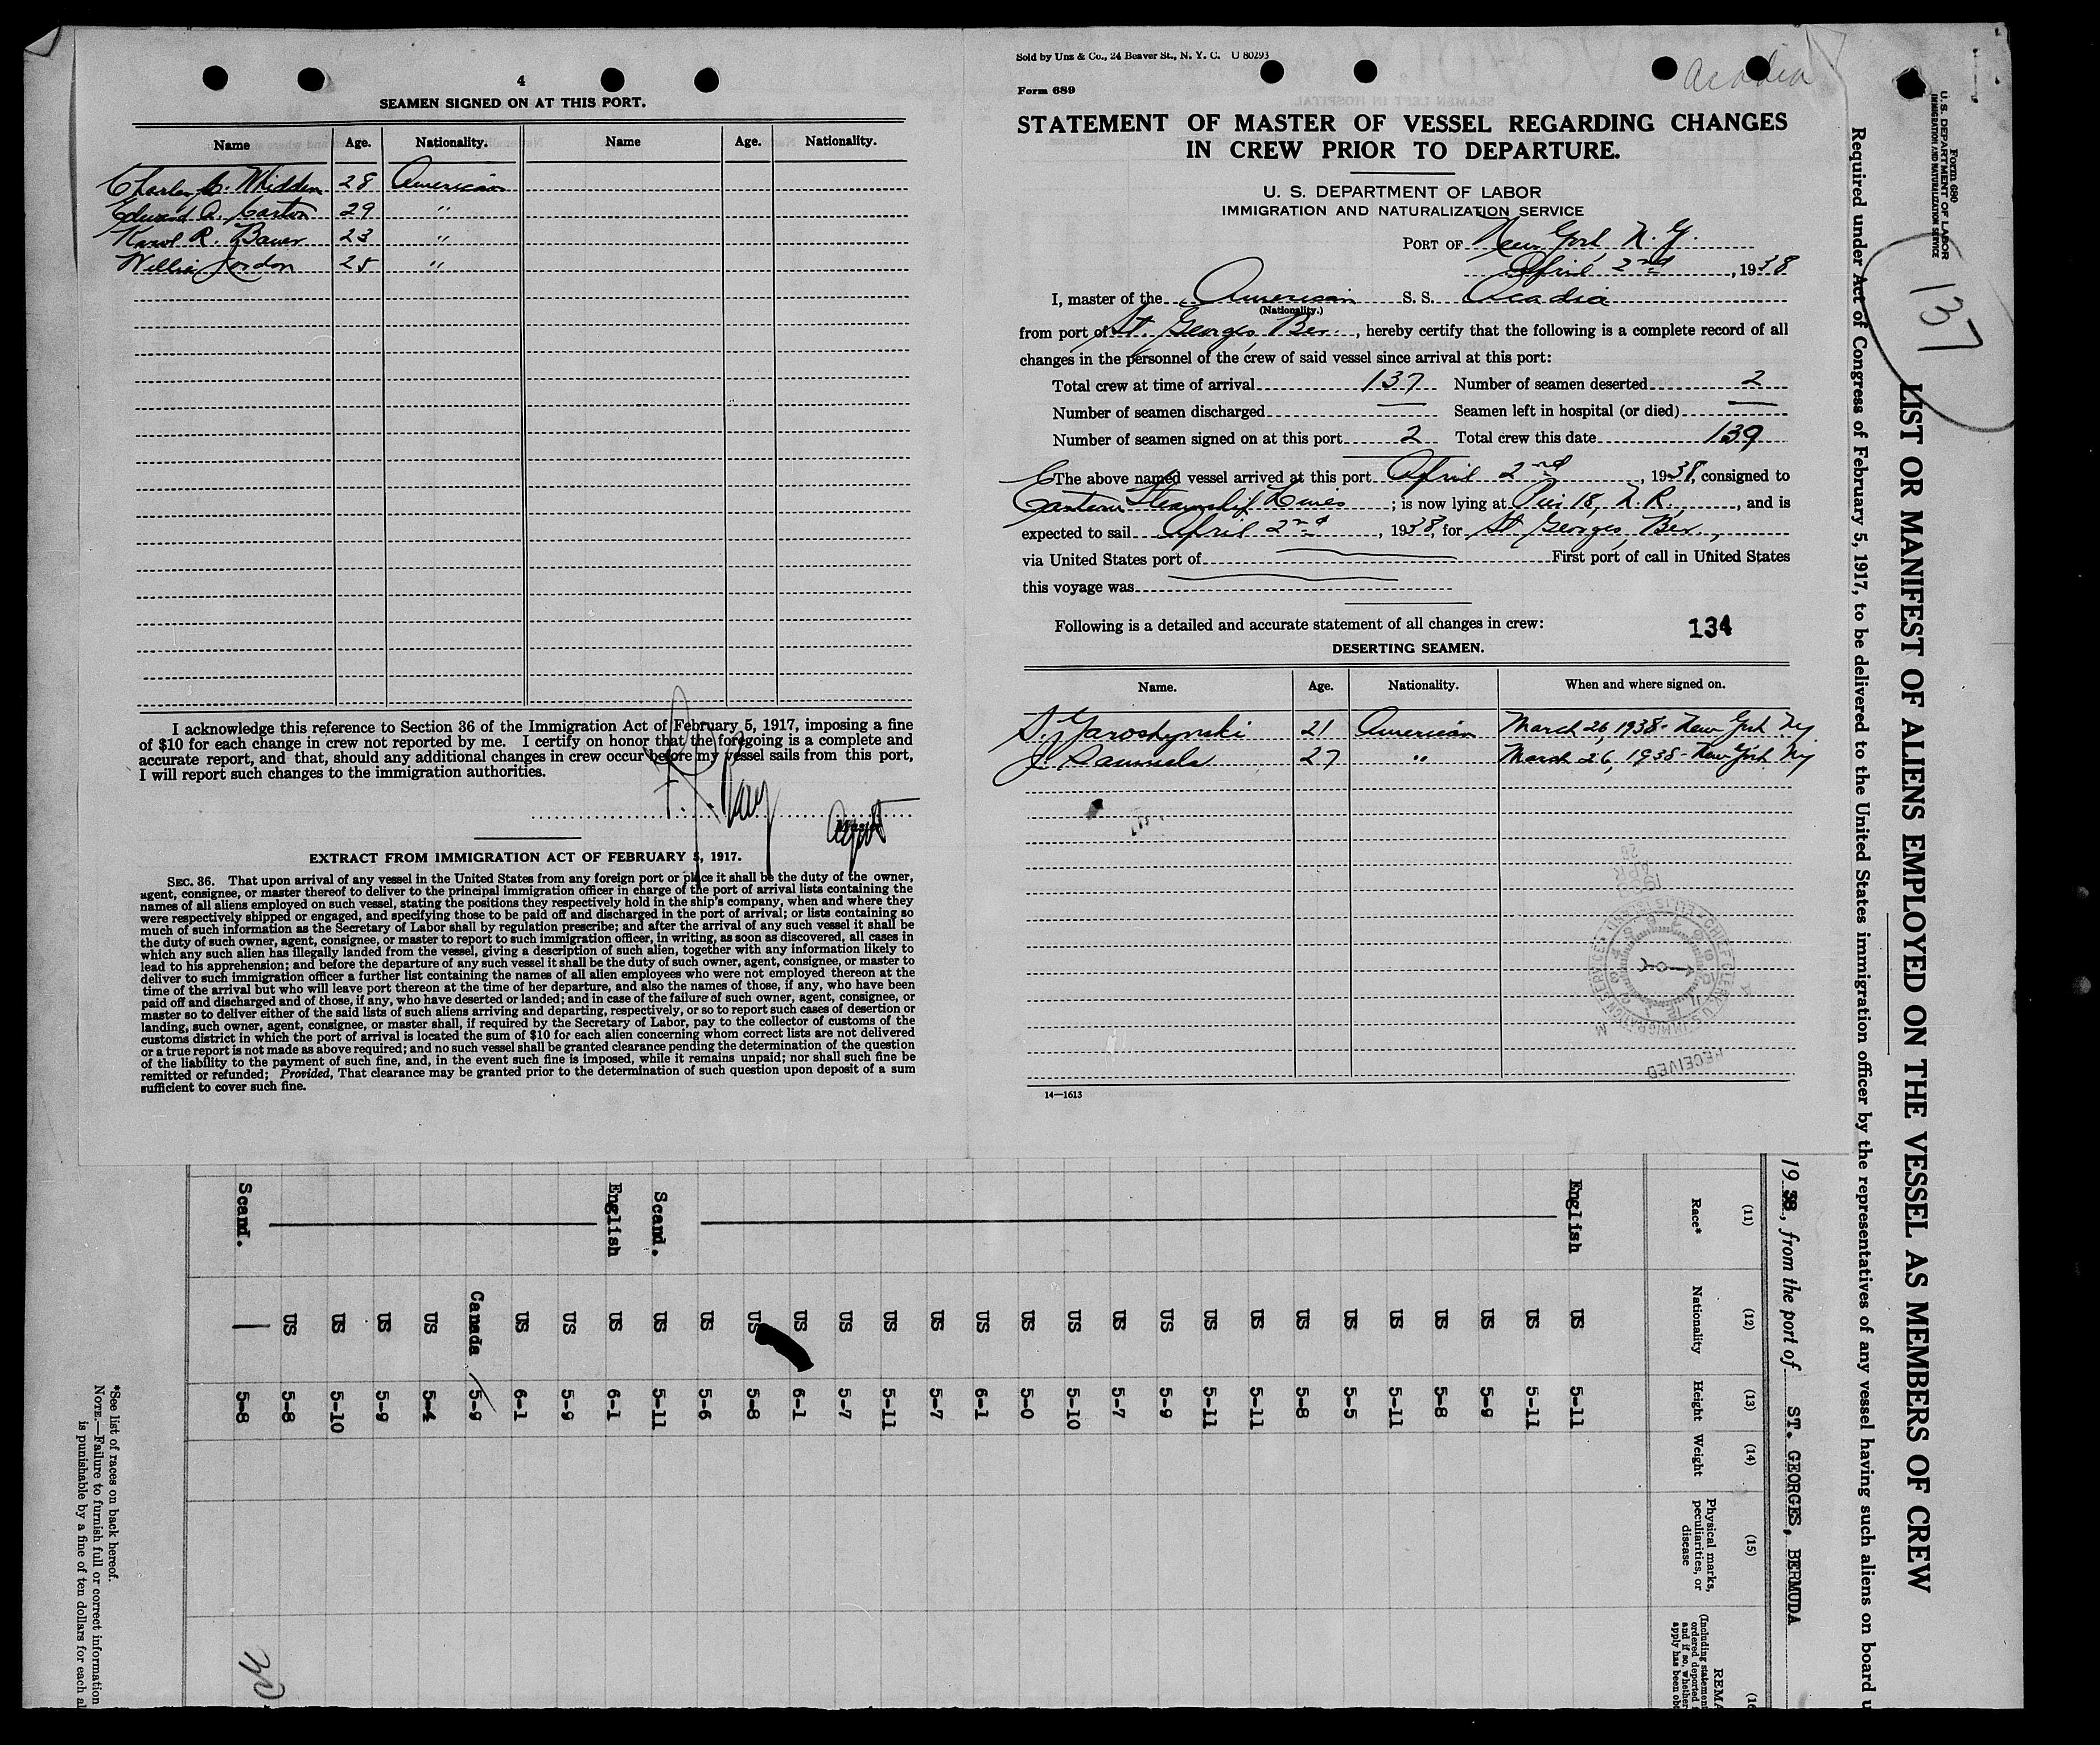 4
SEAMEN SIGNED ON AT THIS PORT.
Name Age. Nationality. Name Age. Nationality.
Charley C. Whidden 28 American
Edward A. Caston 29 "
Karol R. Bauer 23 "
Willie Jordon 25 "
I acknowledge this reference to Section 36 of the Immigration Act of February 5, 1917, imposing a fine
of $10 for each change in crew not reported by me. I certify on honor that the foregoing is a complete and
accurate report, and that, should any additional changes in crew occur before my vessel sails from this port,
I will report such changes to the immigration authorities.
Agent
EXTRACT FROM IMMIGRATION ACT OF FEBRUARY 5, 1917.
SEC. 36. That upon arrival of any vessel in the United States from any foreign port or place it shall be the duty of the owner,
agent, consignee, or master thereof to deliver to the principal immigration officer in charge of the port of arrival lists containing the
names of all aliens employed on such vessel, stating the positions they respectively hold in the ship's company, when and where they
were respectively shipped or engaged, and specifying those to be paid off and discharged in the port of arrival; or lists containing so
much of such information as the Secretary of Labor shall by regulation prescribe; and after the arrival of any such vessel it shall be
the duty of such owner, agent, consignee, or master to report to such immigration officer, in writing, as soon as discovered, all cases in
which any such alien has illegally landed from the vessel, giving a description of such alien, together with any information likely to
lead to his apprehension; and before the departure of any such vessel it shall be the duty of such owner, agent, consignee, or master to
deliver to such immigration officer a further list containing the names of all alien employees who were not employed thereon at the
time of the arrival but who will leave port thereon at the time of her departure, and also the names of those, if any, who have been
paid off and discharged and of those, if any, who have deserted or landed; and in case of the failure of such owner, agent, consignee, or
master so to deliver either of the said lists of such aliens arriving and departing, respectively, or so to report such cases of desertion or
landing, such owner, agent, consignee, or master shall, if required by the Secretary of Labor, pay to the collector of customs of the
customs district in which the port of arrival is located the sum of $10 for each alien concerning whom correct lists are not delivered
or a true report is not made as above required; and no such vessel shall be granted clearance pending the determination of the question
of the liability to the payment of such fine, and, in the event such fine is imposed, while it remains unpaid; nor shall such fine be
remitted or refunded; Provided, That clearance may be granted prior to the determination of such question upon deposit of a sum
sufficient to cover such fine.
Sold by Unz & Co., 24 Beaver St., N. Y. C. U 80293
Form 689
Acadia
STATEMENT OF MASTER OF VESSEL REGARDING CHANGES
IN CREW PRIOR TO DEPARTURE.
U. S. DEPARTMENT OF LABOR
IMMIGRATION AND NATURALIZATION SERVICE
PORT OF New York N. Y.
April 2nd, 1938
I, master of the American S. S. Acadia
(Nationality.)
from port of St. Georges Ber., hereby certify that the following is a complete record of all
changes in the personnel of the crew of said vessel since arrival at this port:
Total crew at time of arrival 137 Number of seamen deserted 2
Number of seamen discharged — Seamen left in hospital (or died) —
Number of seamen signed on at this port 2 Total crew this date 139
The above named vessel arrived at this port April 2nd, 1938, consigned to
Eastern Steamship Lines; is now lying at Pier 18, N. R., and is
expected to sail April 2nd, 1938, for St Georges, Ber.,
via United States port of First port of call in United States
this voyage was
Following is a detailed and accurate statement of all changes in crew: 134
DESERTING SEAMEN.
Name. Age. Nationality. When and where signed on.
S. Jaroshynski 21 American March 26, 1938 - New York Ny
J. Samuels 27 " March 26, 1938 - New York Ny
RECEIVED
14—1613
Form 680
U. S. DEPARTMENT OF LABOR
IMMIGRATION AND NATURALIZATION SERVICE
137
LIST OR MANIFEST OF ALIENS EMPLOYED ON THE VESSEL AS MEMBERS OF CREW
Required under Act of Congress of February 5, 1917, to be delivered to the United States immigration officer by the representatives of any vessel having such aliens on board
1938, from the port of ST. GEORGES, BERMUDA
(11) (12) (13) (14) (15)
Race* Nationality Height Weight Physical marks, peculiarities, or disease
English US 5-11
US 5-11
US 5-9
US 5-8
US 5-11
US 5-5
US 5-8
US 5-11
US 5-11
US 5-9
US 5-7
US 5-10
US 5-0
US 6-1
US 5-7
US 5-11
US 5-7
US 6-1
US 5-8
US 5-6
Scand. US 5-11
English US 6-1
US 5-9
US 6-1
Canada 5-9
US 5-4
US 5-9
US 5-10
US 5-8
Scand. 5-8
*See list of races on back hereof.
NOTE.—Failure to furnish full or correct information
is punishable by a fine of ten dollars for each